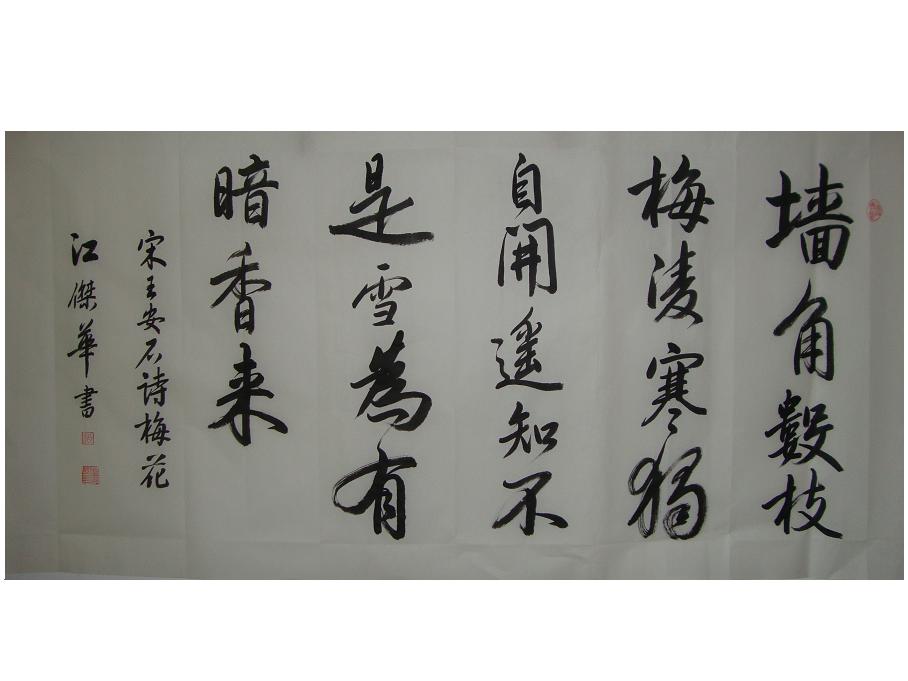 墙角數枝
梅凌寒獨
自開遥知不
是雪為有
暗香来
宋王安石詩梅花
江傑華書